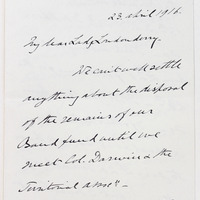 23. April 1916.
My dear Lady Londonderry.
We can't well settle
anything about the disposal
of the remains of our
Band fund until we
meet Col. Darwin & the
Territorial assocn.